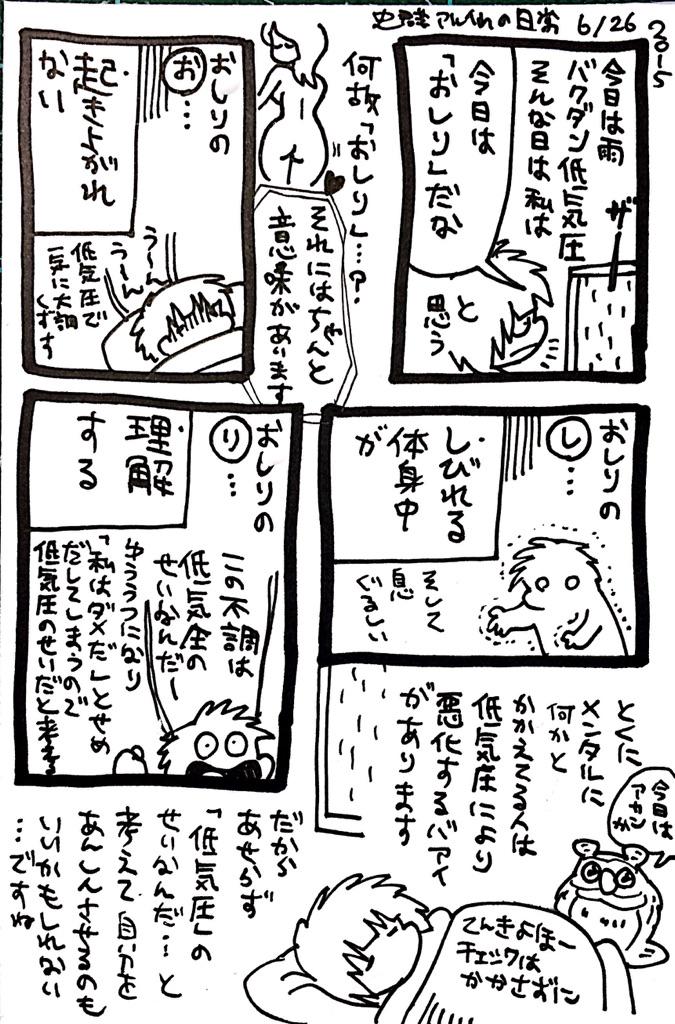 史群アル仙の日常 6/26
2015
今日は雨
バクダン低気圧
そんな日は私は
ザー
今日は
「おしり」だな
と
思う
何故「おしり」…?
それにはちゃんと
意味があります
おしりの
お…
起きよがれ
ない
うーん
うーん
低気圧で
一気に大調
くずす
おしりの
し…
しびれる
体身中
が
そして
息
ぐるしい
おしりの
り…
理解
する
この不調は
低気圧の
せいなんだー
ゆううつになり
「私はダメだ」とせめ
だしてしまうので
低気圧のせいだと考える
とくに
メンタルに
何かと
かかえてる人は
低気圧により
悪化するバアイ
があります
今日は
アカン
だから
あせらず
「低気圧」の
せいなんだ…と
考えて自分を
あんしんさせるのも
いいかもしれない
…ですね
てんきよほー
チェックは
かかさずに